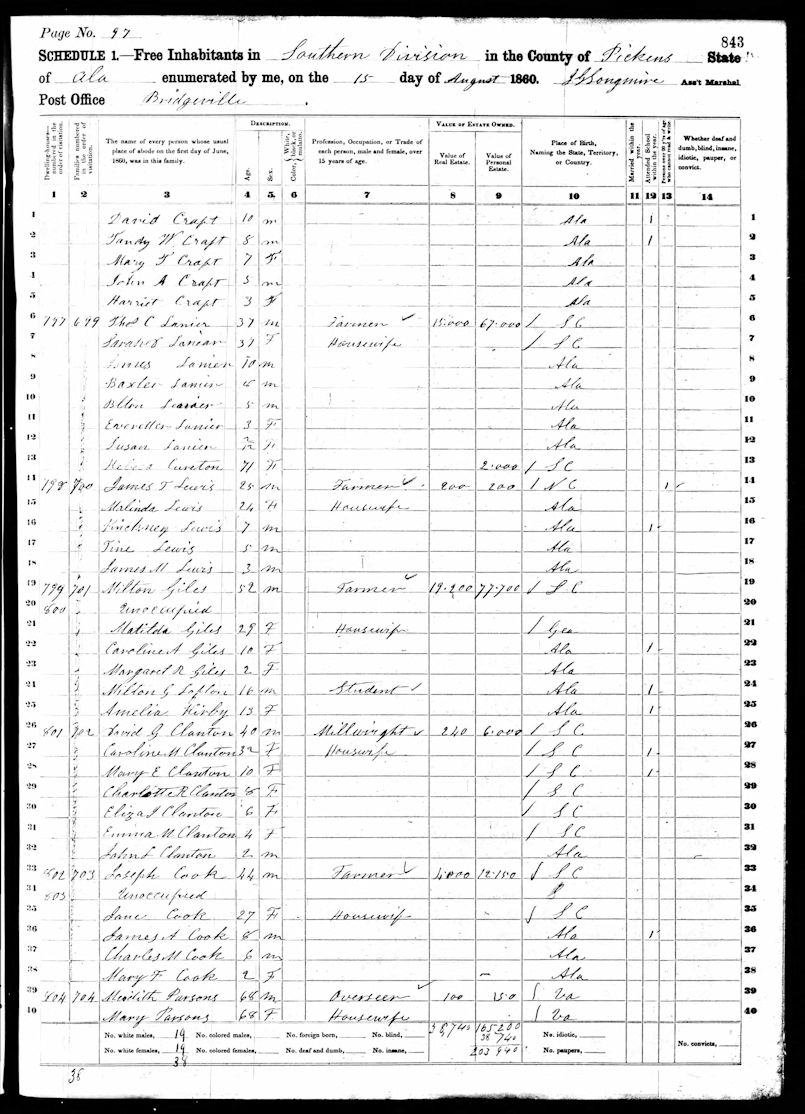 Page No. 97
843
SCHEDULE 1.—Free Inhabitants in Southern Division in the County of Pickens State
of Ala enumerated by me, on the 15 day of August 1860. Ass't Marshal
Post Office Bridgeville
DESCRIPTION. VALUE OF ESTATE OWNED.
Dwelling-houses—numbered in the order of visitation. Families numbered in the order of visitation. The name of every person whose usual place of abode on the first day of June, 1860, was in this family. Age. Sex. Color, White, black, or mulatto. Profession, Occupation, or Trade of each person, male and female, over 15 years of age. Value of Real Estate. Value of Personal Estate. Place of Birth, Naming the State, Territory, or Country. Married within the year. Attended School within the year. Persons over 20 y'rs of age who cannot read & write. Whether deaf and dumb, blind, insane, idiotic, pauper, or convict.
1 2 3 4 5 6 7 8 9 10 11 12 13 14
1 David Craft 10 m Ala 1 1
2 Tandy W. Craft 8 m Ala 1 2
3 Mary F Craft 7 F Ala 3
4 John A Craft 5 m Ala 4
5 Harriet Craft 3 F Ala 5
6 797 699 Thos C Lanier 37 m Farmer 15.000 67.000 / S C 6
7 Lanier 37 F Housewife / S C 7
8 Lanier 10 m Ala 8
9 Baxter Lanier 8 m Ala 9
10 5 m Ala 10
11 Lanier 3 F Ala 11
12 Susan Lanier F Ala 12
13 Cureton 71 F 2.000 / S C 13
14 798 700 James T Lewis 25 m Farmer 200 200 / N C 1 14
15 Malinda Lewis 24 F Housewife Ala 15
16 Pinckney Lewis 7 m Ala 1 16
17 Lewis 5 m Ala 17
18 James M Lewis 3 m Ala 18
19 799 701 Milton Giles 52 m Farmer 19.200 77.700 / S C 19
20 800 Unoccupied 20
21 Matilda Giles 29 F Housewife / Geo 21
22 Caroline A Giles 10 F Ala 1 22
23 Margaret R Giles 2 F Ala 23
24 Milton G Lofton 16 m Student Ala 1 24
25 Amelia Kirby 13 F Ala 1 25
26 801 702 David G Clanton 40 m Millwright 240 6.000 / S C 26
27 Caroline M Clanton 32 F Housewife / S C 1 27
28 Mary E Clanton 10 F / S C 1 28
29 Charlotte R Clanton 8 F / S C 29
30 Eliza J Clanton 6 F / S C 30
31 Emma N Clanton 4 F / S C 31
32 John L Clanton 2 m Ala 32
33 802 703 Joseph Cook 44 m Farmer 4.000 12.150 / S C 33
34 803 Unoccupied 34
35 Jane Cook 27 F Housewif / S C 35
36 James A Cook 8 m Ala 1 36
37 Charles M Cook 6 m Ala 37
38 Mary F Cook 2 F Ala 38
39 804 704 Meridith Parsons 68 m Overseer 100 150 / Va 39
40 Mary Parsons 68 F Housewife / Va 40
No. white males, 19 No. colored males, No. foreign born, No. blind, 38,740 165 200 No. idiotic,
38 740
No. white females, 19 No. colored females, No. deaf and dumb, No. insane, 203 940 No. paupers, No. convicts,
38
38